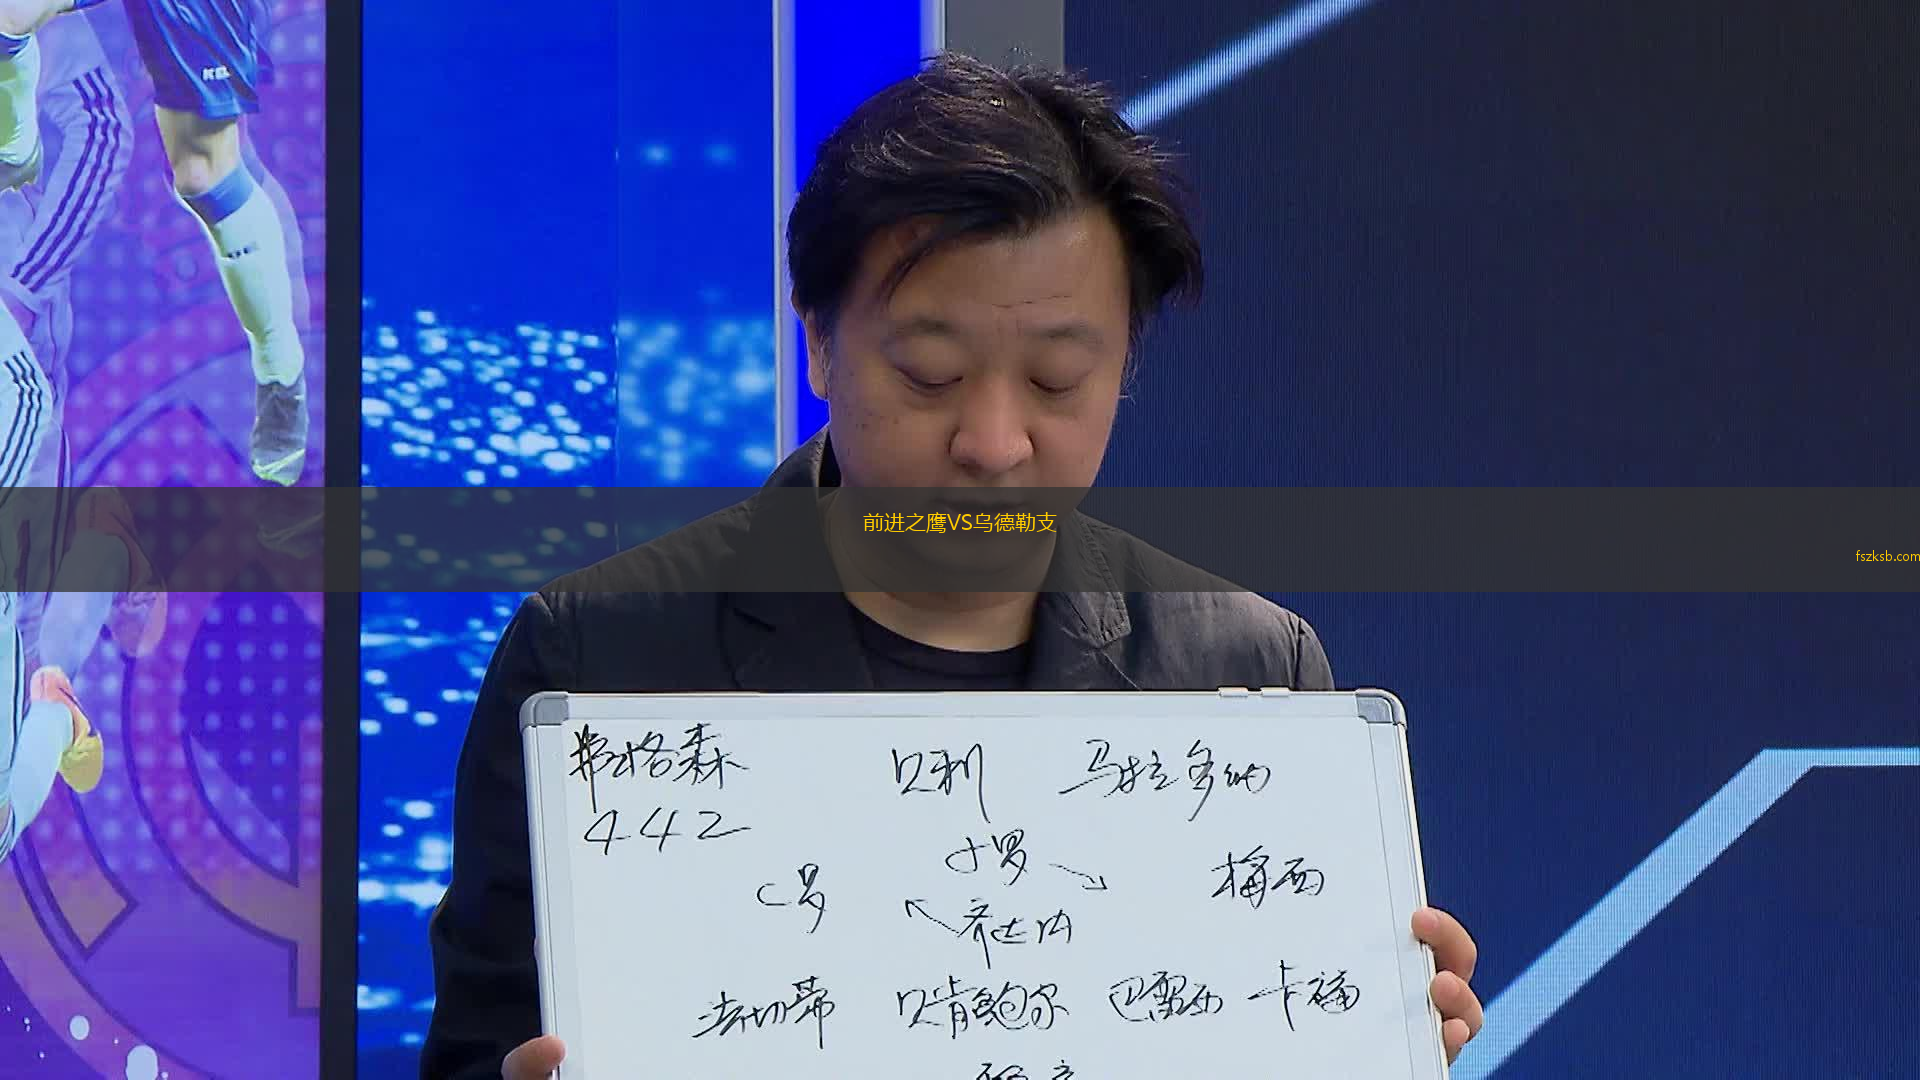 前进之鹰VS乌德勒支
fszksb.com
弗格森 贝利 马拉多纳
442
小罗
C罗 梅西
齐达内
法切蒂 贝肯鲍尔 巴雷西 卡福